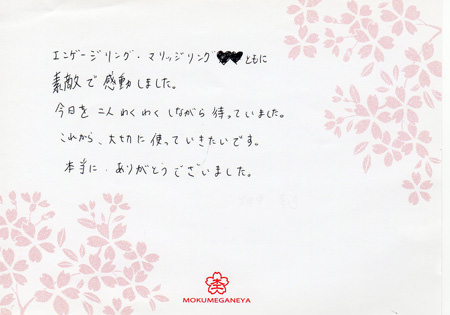 エンゲージリング・マリッジリング ともに
素敵で感動しました。
今日を二人わくわくしながら待っていました。
これから、大切に使っていきたいです。
本当に、ありがとうございました。
MOKUMEGANEYA